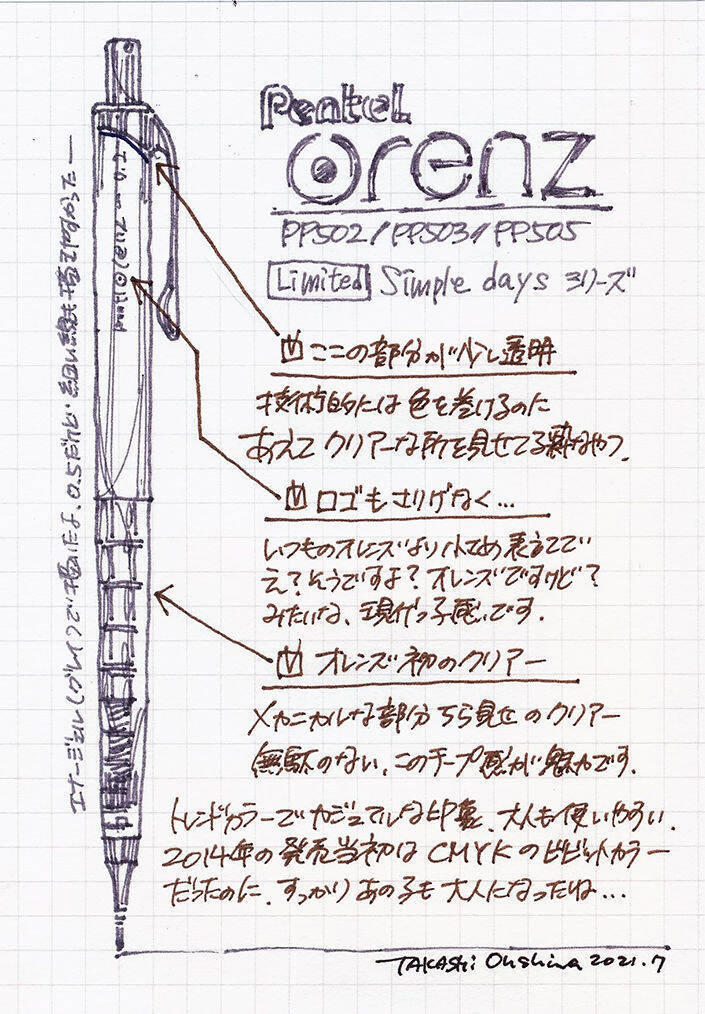 Pentel
Orenz
PP502/PP503/PP505
Limited Simple days シリーズ
ここの部分が少し透明
技術的には色を巻けるのに
あえてクリアーな所を見せてる粋なやつ.
ロゴもさりげなく...
いつものオレンズより小さめ表記で
え？そうですよ？オレンズですけど？
みたいな、現代っ子感です.
オレンズ初のクリアー
メカニカルな部分ちら見せのクリアー
無駄のない、このテープ感が魅力です.
トレンドカラーでカジュアルな印象、大人も使いやすい.
2014年の発売当初はCMYKのビビットカラー
だったのに、すっかりあの子も大人になったね...
エナージェル(グレイ)で描いたよ、0.5だけど、細い線も描けちゃった
TAKASHi Ohshima 2021.7